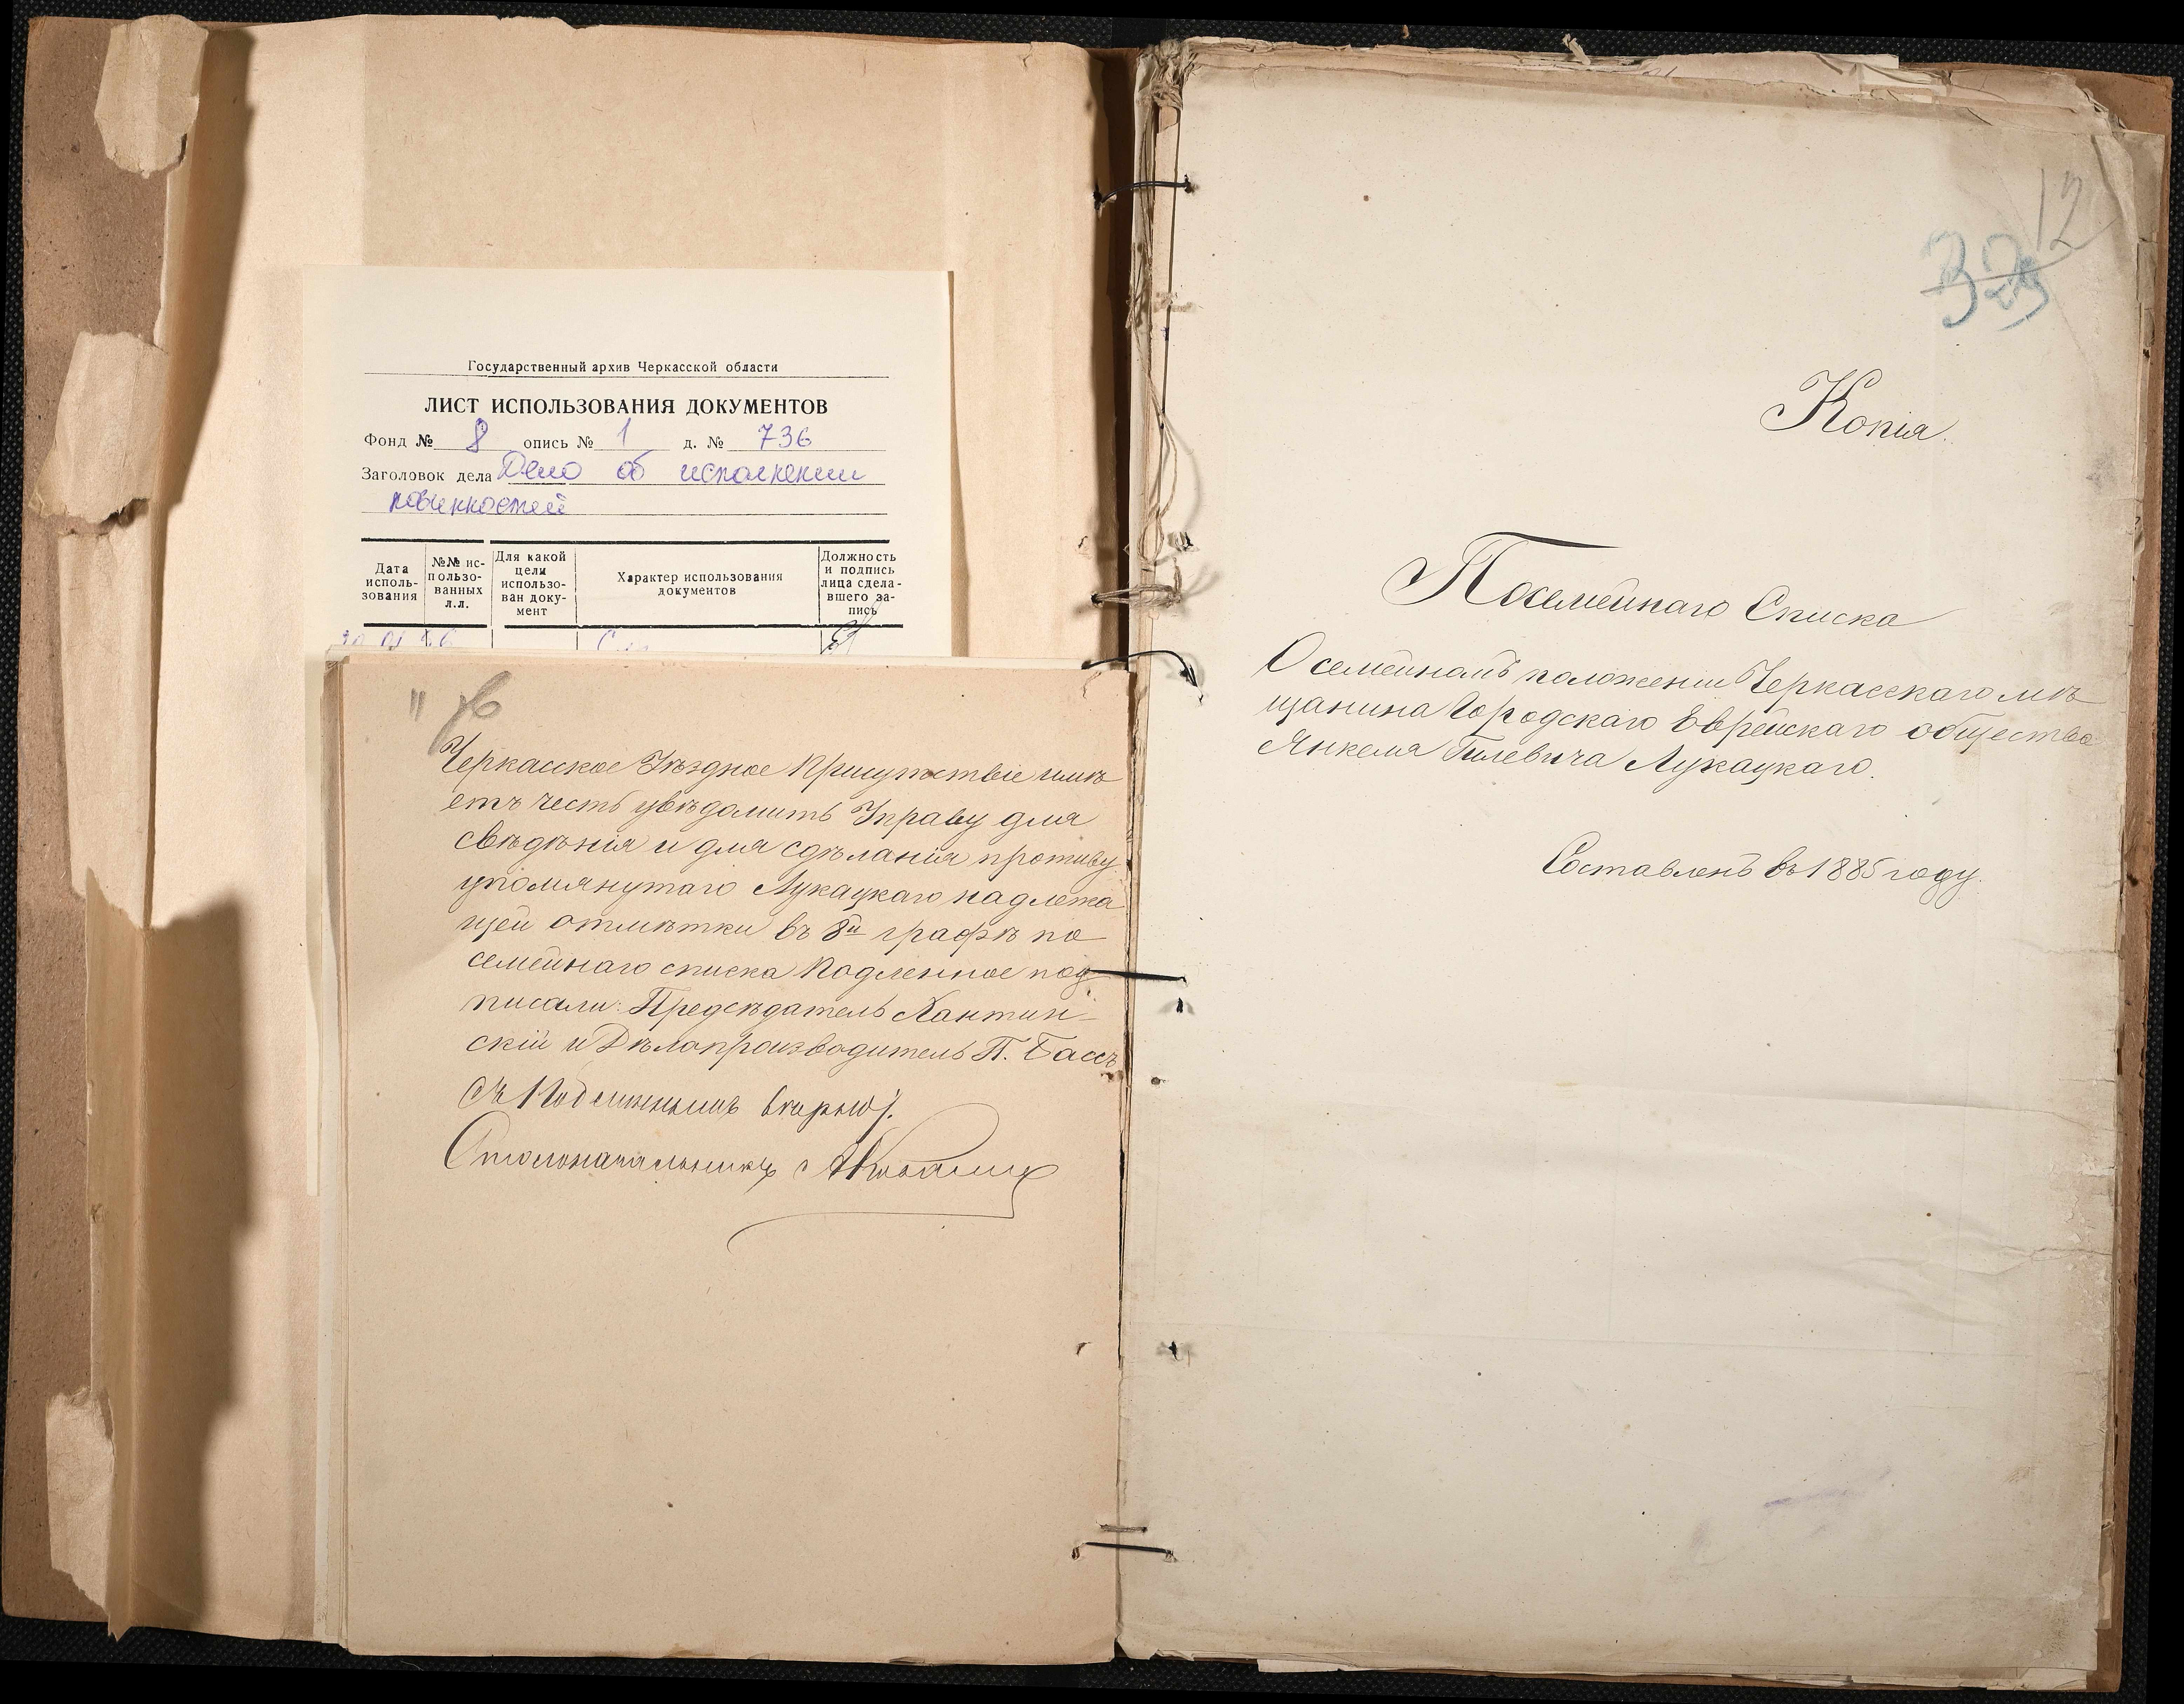 Государственный архив Черкасской области
ЛИСТ ИСПОЛЬЗОВАНИЯ ДОКУМЕНТОВ
Фонд № 8 опись № 1 д. № 736
Заголовок дела Дело об исполнении
повинностей
Дата исполь-зования
№№ ис-пользо-ванных л.л.
Для какой цели использо-ван доку-мент
Характер использования документов
Должность и подпись лица сдела-вшего за-пись
"
Черкасское Уѣздное Присутствіе имѣ
етъ честь увѣдомить Управу для
свѣдѣнія и для сдѣланія противу
упомянутаго Лукацкаго надлежа
щей отмѣтки въ 8й графѣ по
семейнаго списка Подленное под
писали: Предсѣдатель Лантин-
скій и Дѣлопроизводитель П. Бассъ
Съ Подлиннымъ вѣрно:
Столоначальникъ
12
Копія.
Посемейнаго Списка
О семейномъ положеніи Черкасскаго мѣ
щанина Городскаго Еврейскаго общества
Янкеля Гилевича Лукацкаго.
Составленъ въ 1885 году.